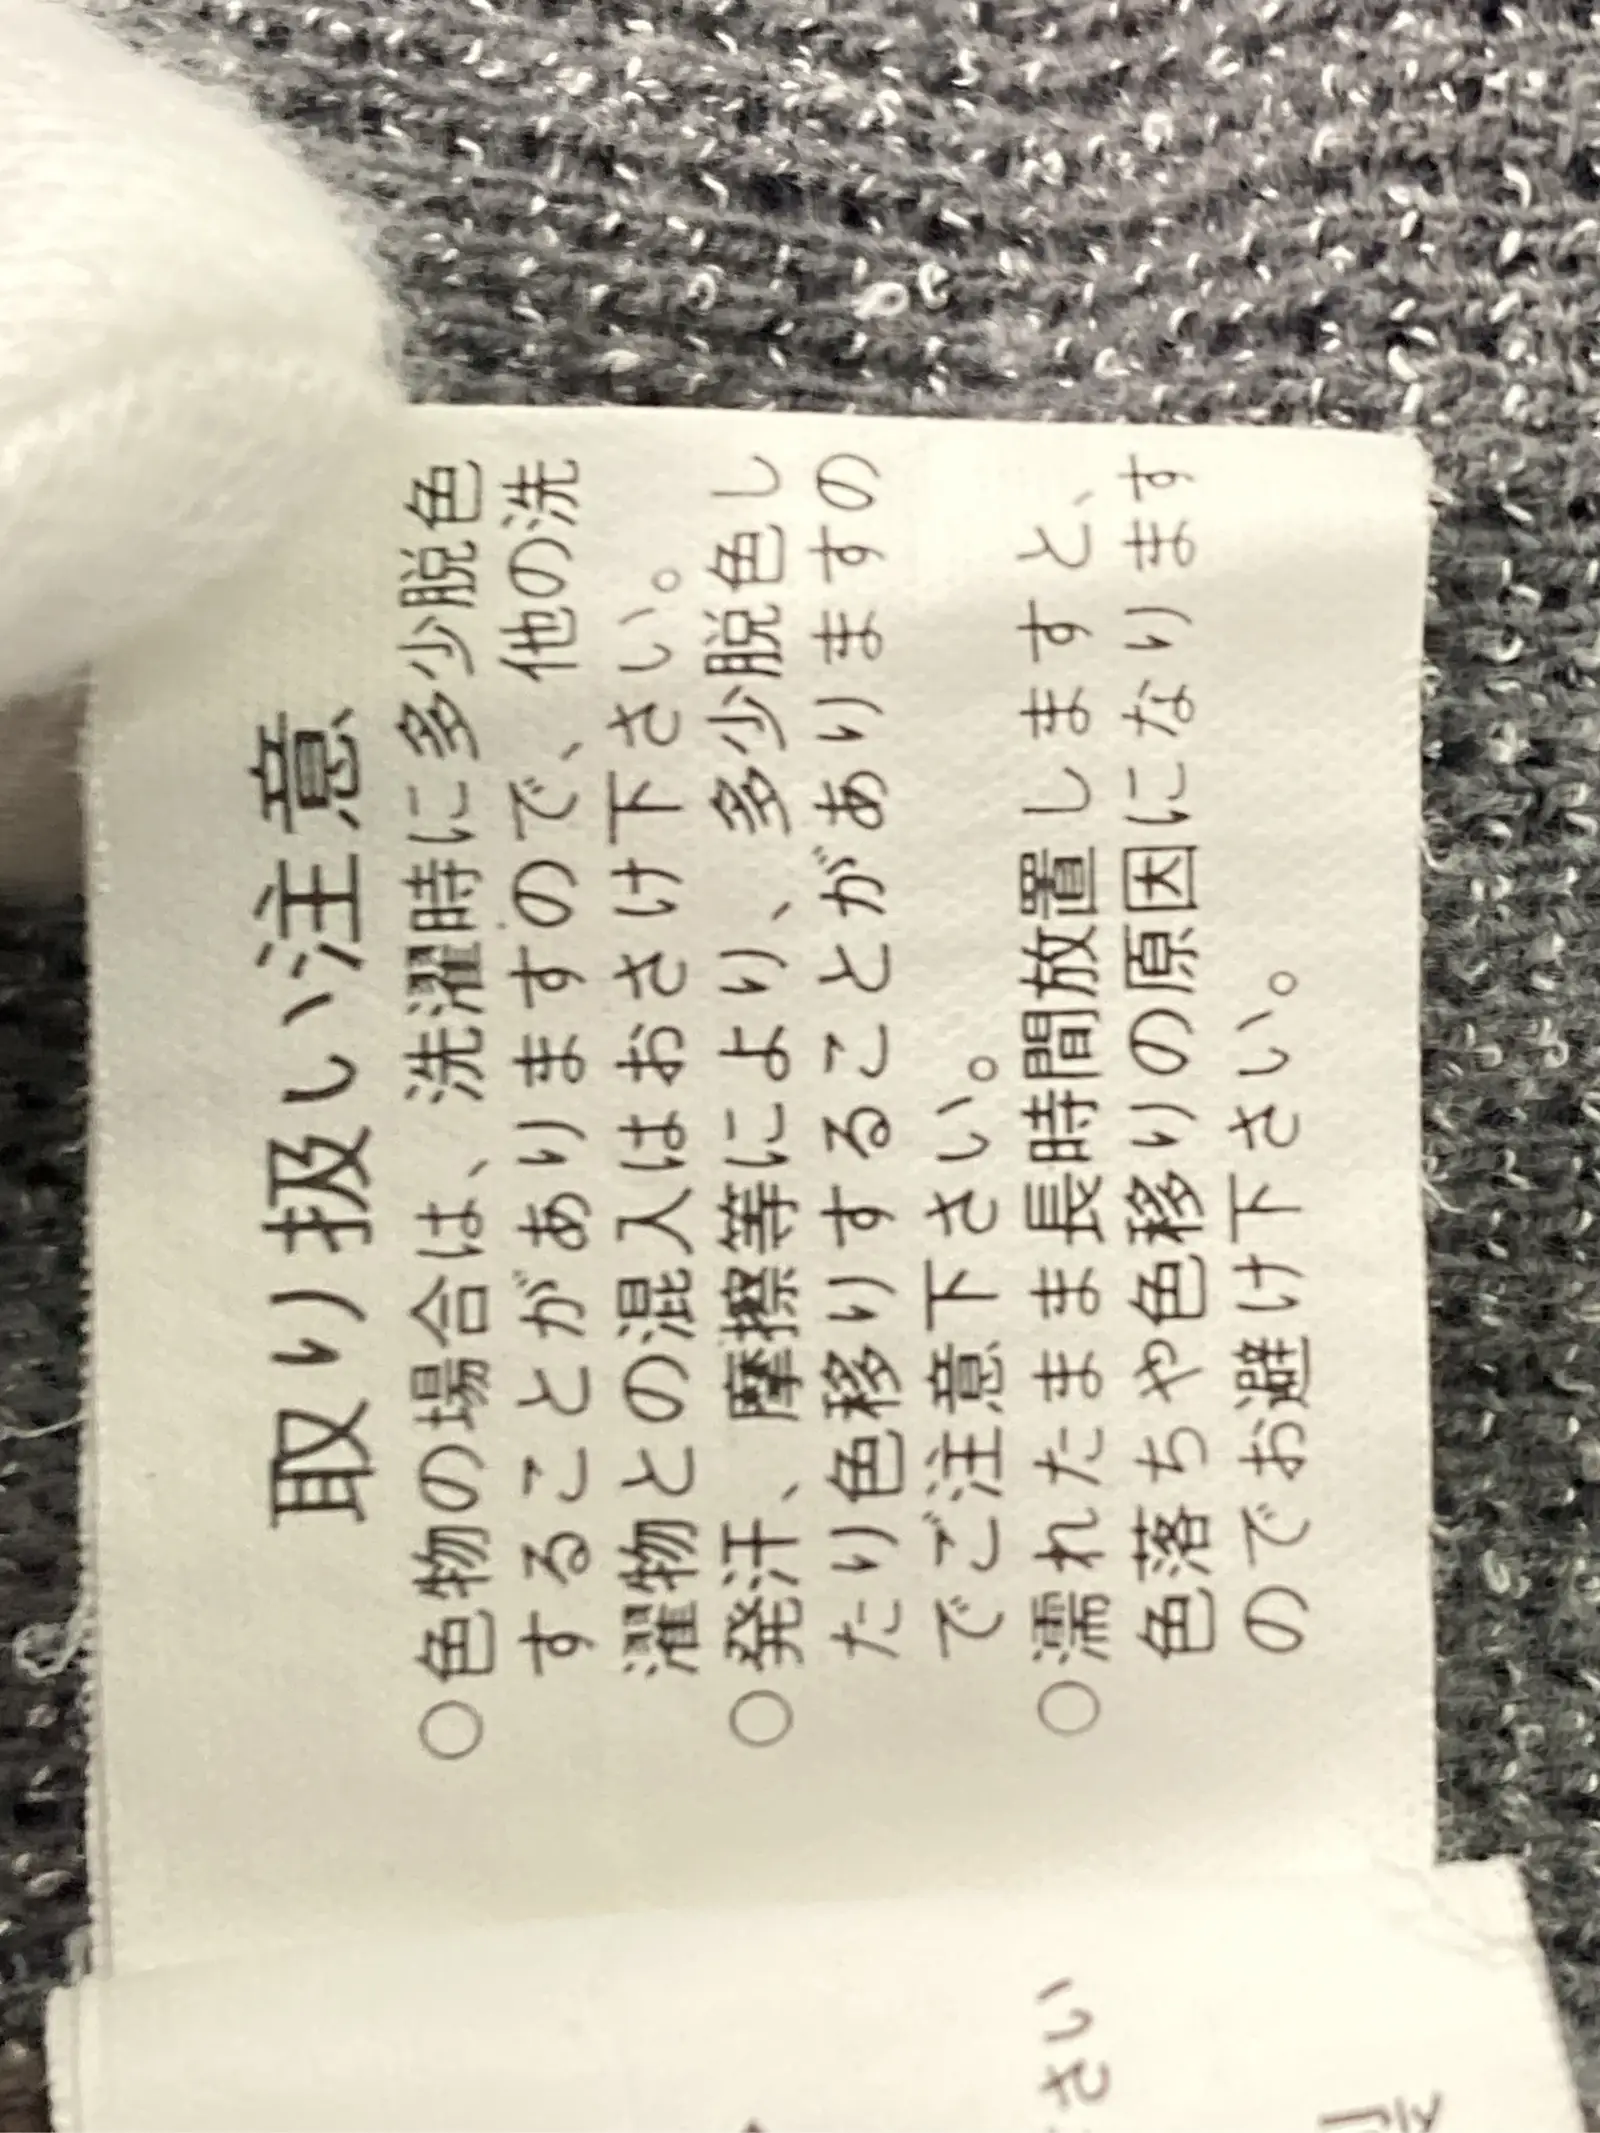 取り扱い注意
○色物の場合は、洗濯時に多少脱色
することがありますので、他の洗
濯物との混入はおさけ下さい。
○発汗、摩擦等により、多少脱色し
たり色移りすることがありますの
でご注意下さい。
○濡れたまま長時間放置しますと、
色落ちや色移りの原因になります
のでお避け下さい。
さい